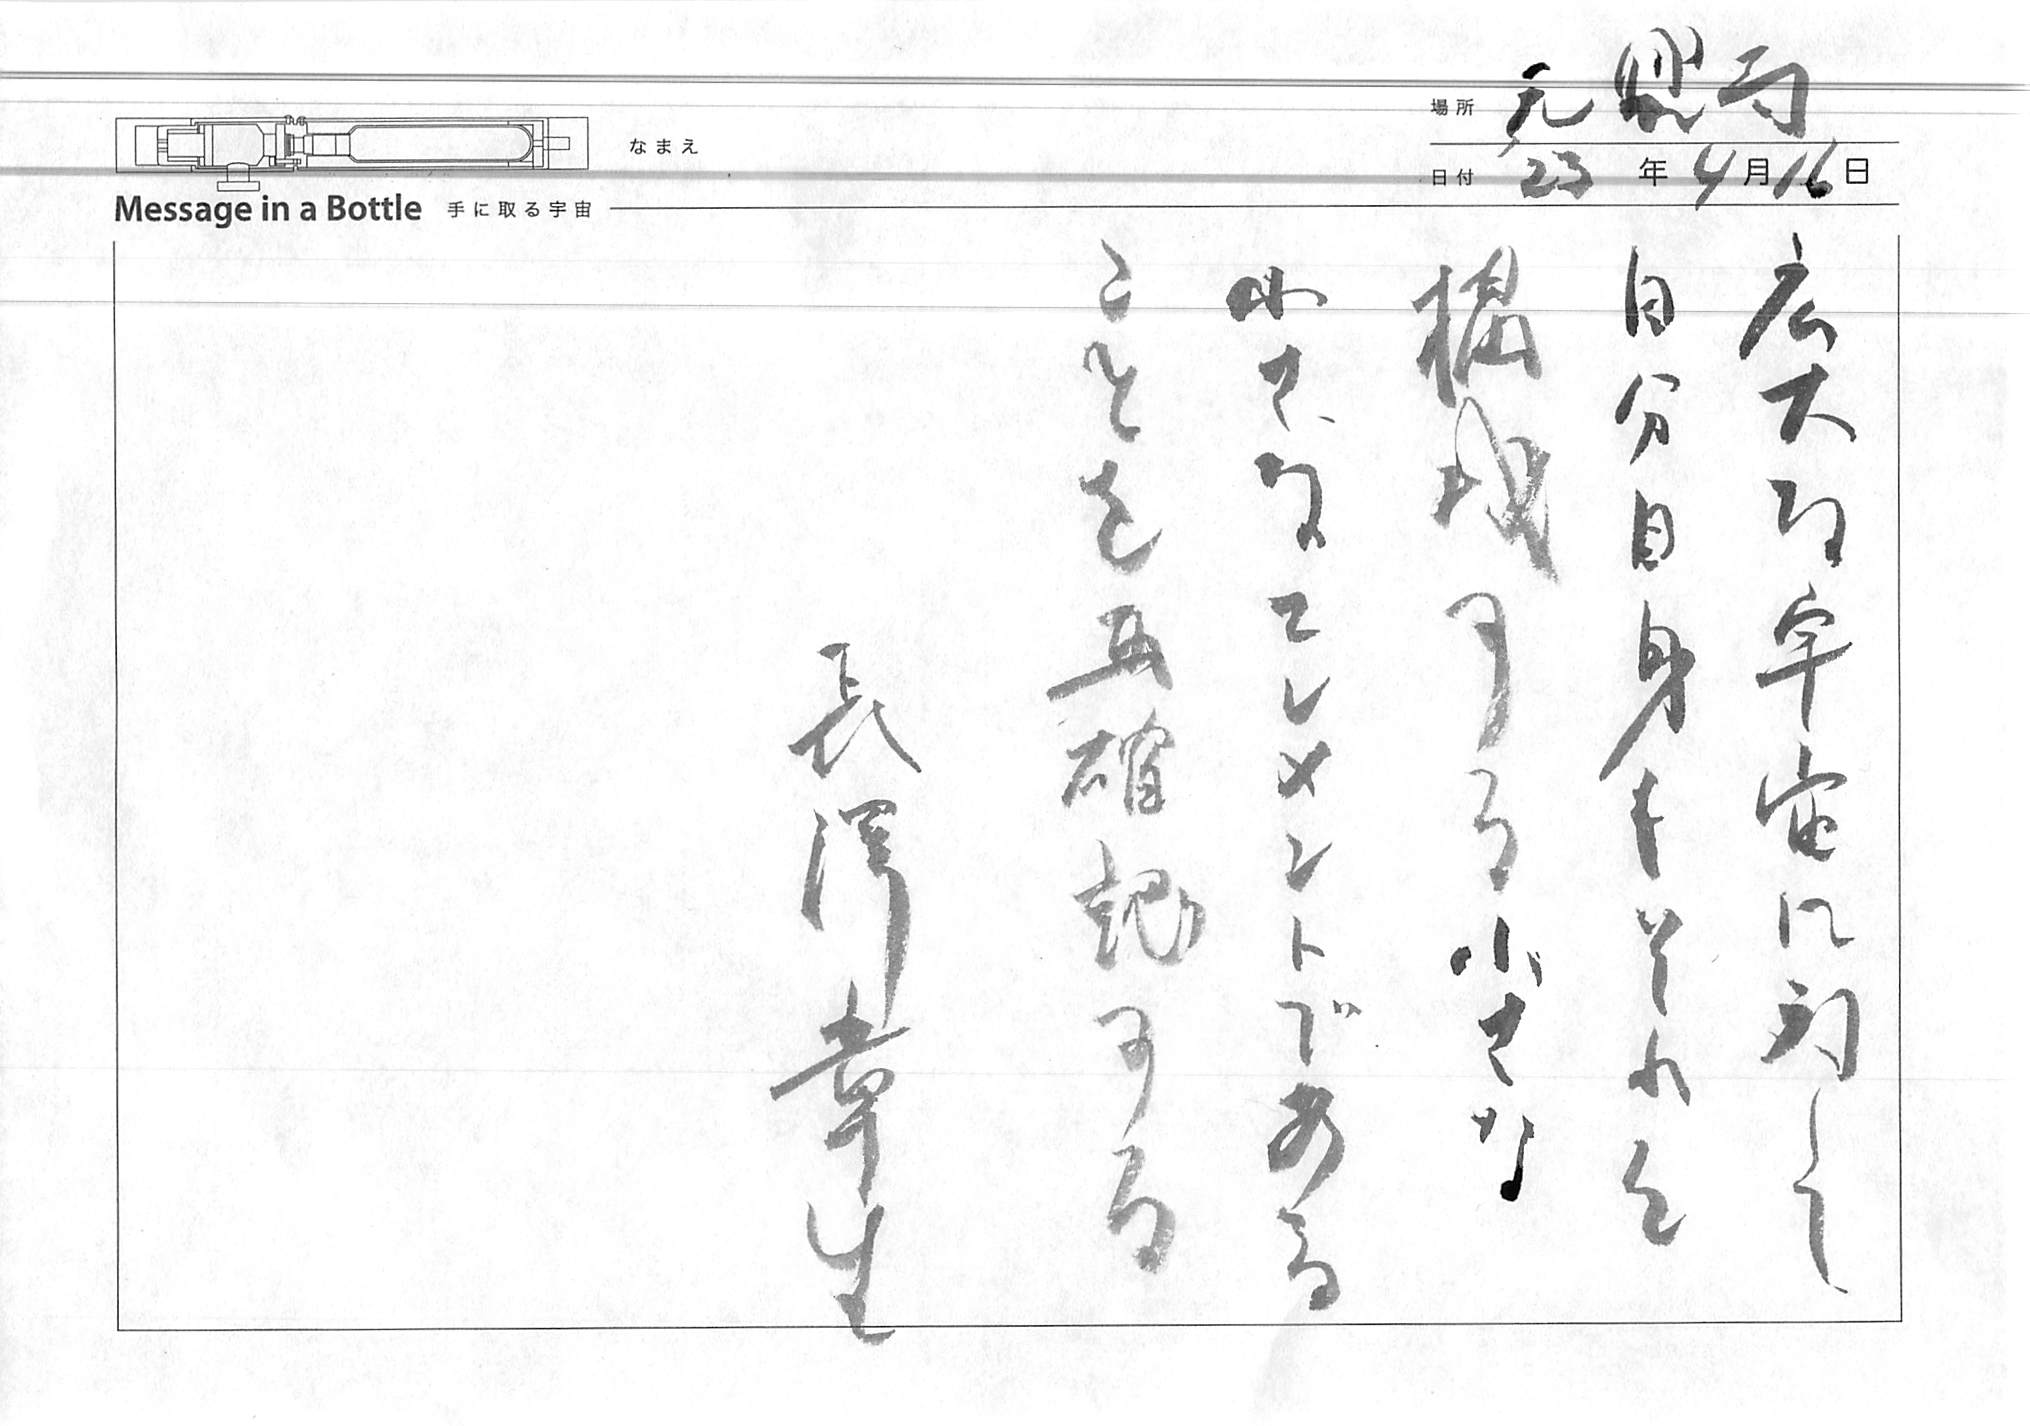 場所 元興寺
日付 23年4月16日
なまえ
Message in a Bottle 手に取る宇宙
広大な宇宙に対して
自分自身もそれを
構成する小さな
小さなエレメントである
ことを再確認する
長澤章生